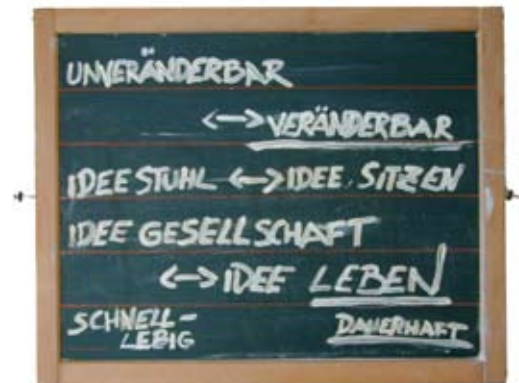 UNVERÄNDERBAR
<-> VERÄNDERBAR
IDEE STUHL <-> IDEE SITZEN
IDEE GESELLSCHAFT
<-> IDEE LEBEN
SCHNELL- DAUERHAFT
LEBIG